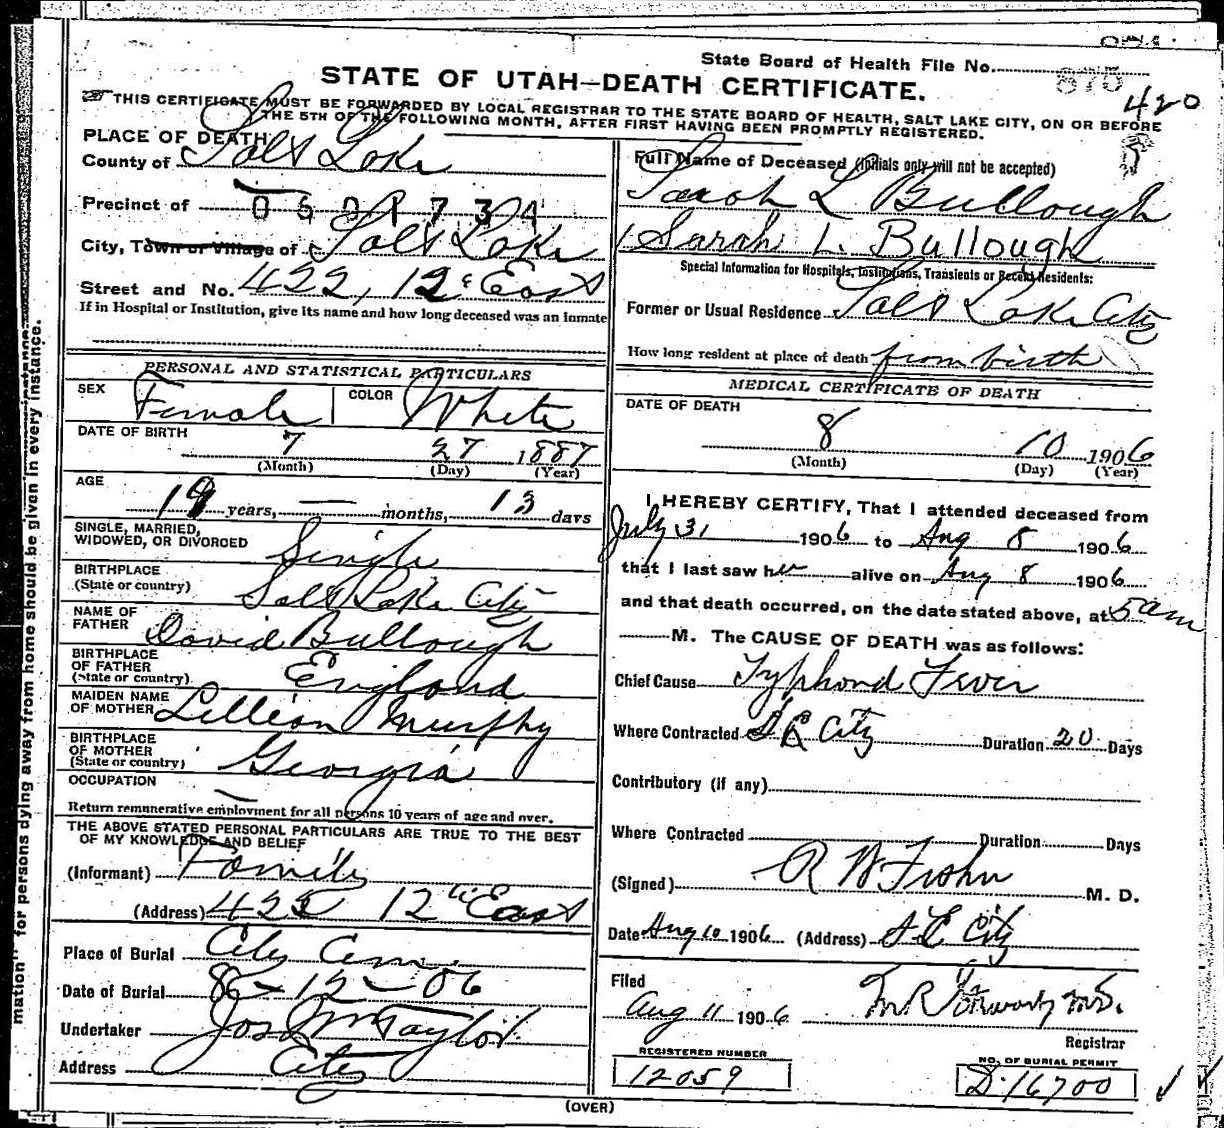 State Board of Health File No. 875
420
STATE OF UTAH—DEATH CERTIFICATE.
THIS CERTIFICATE MUST BE FORWARDED BY LOCAL REGISTRAR TO THE STATE BOARD OF HEALTH, SALT LAKE CITY, ON OR BEFORE
THE 5TH OF THE FOLLOWING MONTH, AFTER FIRST HAVING BEEN PROMPTLY REGISTERED.
PLACE OF DEATH
County of Salt Lake
Precinct of
0601734
City, Town or Village of Salt Lake
Street and No. 422, 12 East
If in Hospital or Institution, give its name and how long deceased was an inmate
PERSONAL AND STATISTICAL PARTICULARS
SEX Female COLOR White
DATE OF BIRTH 7 27 1887
(Month) (Day) (Year)
AGE 19 years, — months, 13 days
SINGLE, MARRIED,
WIDOWED, OR DIVORCED Single
BIRTHPLACE
(State or country) Salt Lake City
NAME OF
FATHER David Bullough
BIRTHPLACE
OF FATHER
(State or country) England
MAIDEN NAME
OF MOTHER Lillian Murphy
BIRTHPLACE
OF MOTHER
(State or country) Georgia
OCCUPATION —
Return remunerative employment for all persons 10 years of age and over.
THE ABOVE STATED PERSONAL PARTICULARS ARE TRUE TO THE BEST
OF MY KNOWLEDGE AND BELIEF
(Informant) Family
(Address) 422 12th East
Place of Burial City Cem.
Date of Burial 8-12-06
Undertaker Jos Wm Taylor
Address City
Full Name of Deceased (Initials only will not be accepted)
Sarah L Bullough
Sarah L. Bullough
Special Information for Hospitals, Institutions, Transients or Recent Residents:
Former or Usual Residence Salt Lake City
How long resident at place of death from birth
MEDICAL CERTIFICATE OF DEATH
DATE OF DEATH
8 10 1906
(Month) (Day) (Year)
I HEREBY CERTIFY, That I attended deceased from
July 31 1906 to Aug 8 1906
that I last saw her alive on Aug 8 1906
and that death occurred, on the date stated above, at 5 am
M. The CAUSE OF DEATH was as follows:
Chief Cause Typhoid Fever
Where Contracted S L City Duration 20 Days
Contributory (if any)
Where Contracted Duration Days
(Signed) R W M. D.
Date Aug 10 1906 (Address) S L City
Filed
Aug 11 1906 M R M.D.
Registrar
REGISTERED NUMBER
12059
NO. OF BURIAL PERMIT
D-16700
(OVER)
mation" for persons dying away from home should be given in every instance.